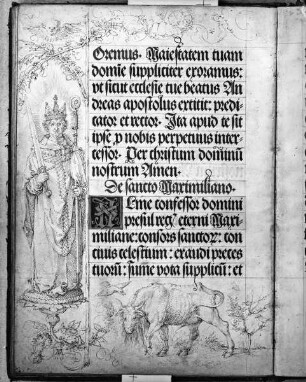 Oremus. Maiestatem tuam
domie suppliciter exoramus:
vt sicut ecclesie tue beatus An
dreas apostolus extitit: predi
cator et rector. Ita apud te sit
ipse pro nobis perpetuus inter
cessor. Per christum dominum
nostrum Amen.
De sancto Maximiliano.
Alme confessor domini
presul reg eterni Maxi
miliane: consors sanctoꝝ: con
ciuis celestium: exaudi preces
tuorū: sume vota supplicū: et